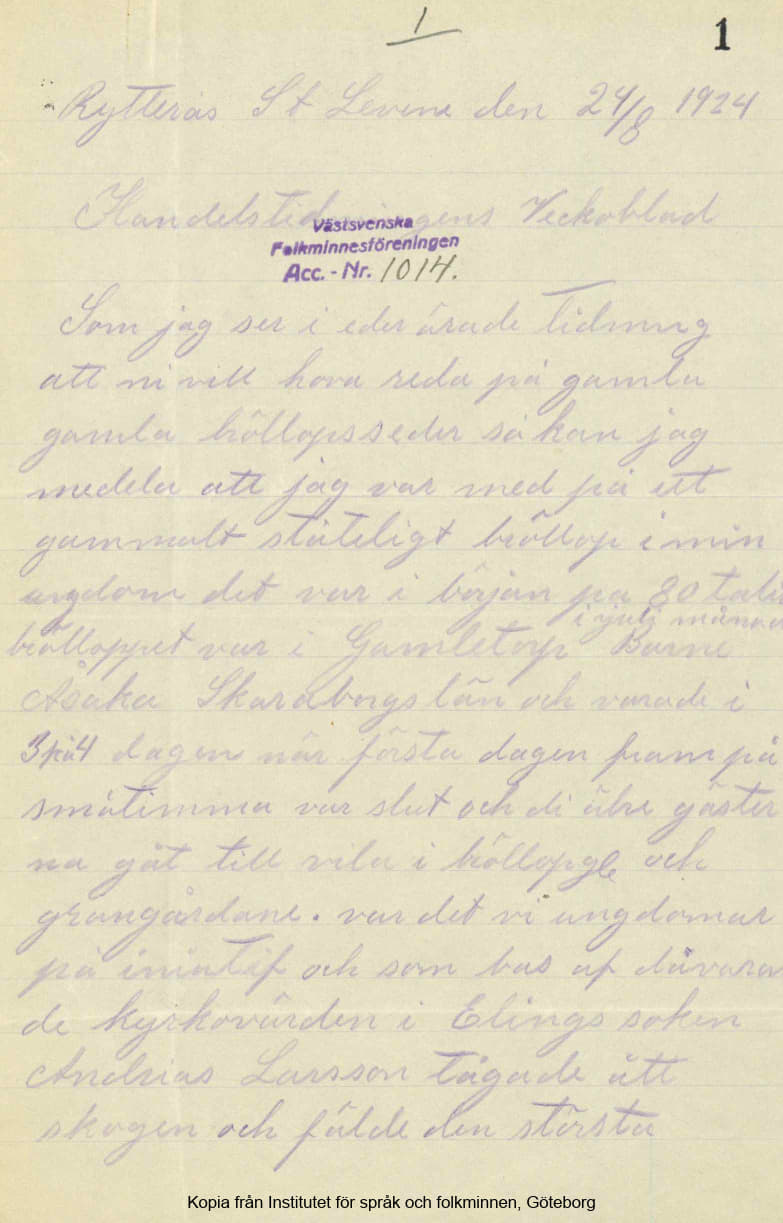 1
1
Rytterås St Levene den 24/8 1924
Handelstidningens Veckoblad
Västsvenska
Folkminnesföreningen
Acc. - Nr. 1014.
Som jag ser i eder ärade tidning
att ni vill hava reda på gamla
gamla bröllopsseder så kan jag
medela att jag var med på ett
gammalt ståteligt bröllop i min
ungdom det var i början på 80 talet
i juli månad
brölloppet var i Gamletorp Barne
Åsaka Skaraborgs län och varade i
3 på 4 dagen när första dagen fram på
småtimma var slut och di äldre gäster
na gåt till vila i bröllopsg och
grangårdane. var det vi ungdomar
på iniatif och som bas af dåvaran
de kyrkovärden i Elings soken
Andreas Larsson tågade ått
skogen och fälde den största
Kopia från Institutet för språk och folkminnen, Göteborg